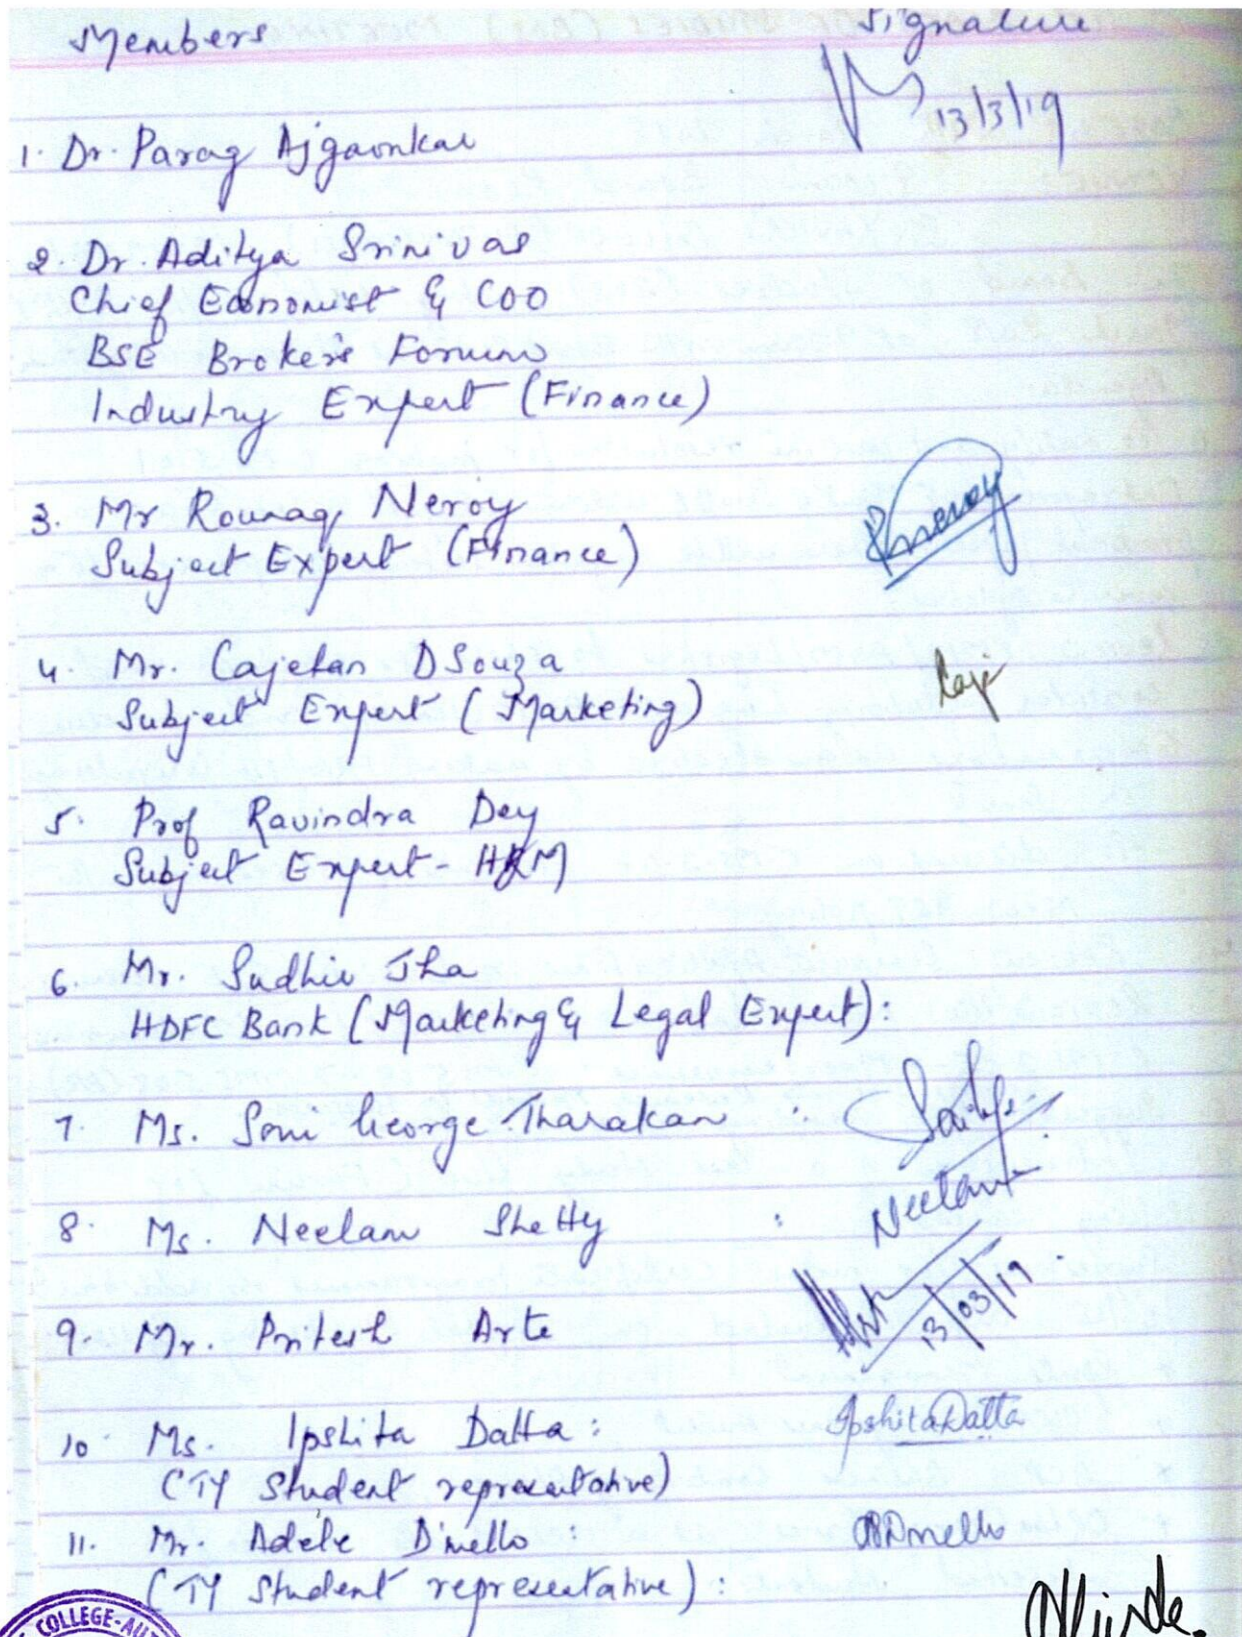 Members Signature
13/3/19
1. Dr. Parag Ajgaonkar
2. Dr. Aditya Srinivas
Chief Economist & COO
BSE Broker's Forum
Industry Expert (Finance)
3. Mr Rounaq Neroy
Subject Expert (Finance)
Rneroy
4. Mr. Cajetan DSouza
Subject Expert (Marketing)
Caje
5. Prof Ravindra Dey
Subject Expert - HRM
6. Mr. Sudhir Jha
HDFC Bank (Marketing & Legal Expert):
7. Ms. Soni George Tharakan :
8. Ms. Neelam Shetty : Neelam
9. Mr. Pritesh Arte 13/03/19
10. Ms. Ipshita Datta: Ipshita Datta
(TY Student representative)
11. Mr. Adele D'mello: ADmello
(TY Student representative):
COLLEGE-AUT